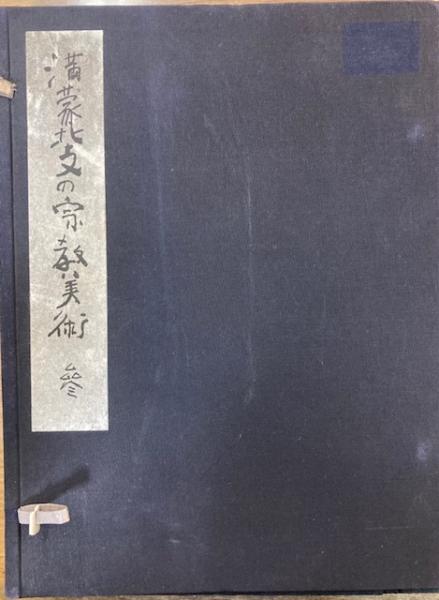 満蒙北支の宗教美術 參